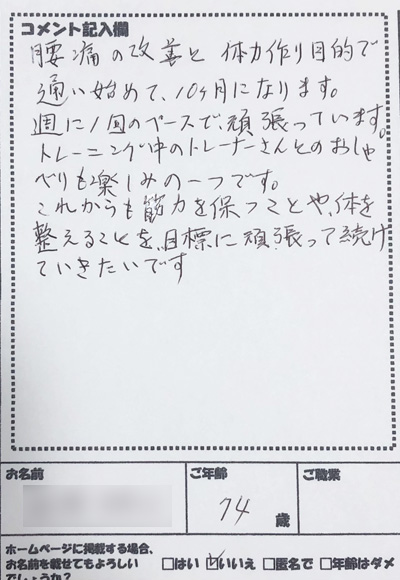 コメント記入欄
腰痛の改善と体力作り目的で
通い始めて、10ヶ月になります。
週に1回のペースで、頑張っています。
トレーニング中のトレーナーさんとのおしゃ
べりも楽しみの一つです。
これからも筋力を保つことや、体を
整えることを、目標に頑張って続け
ていきたいです
お名前
ご年齢
ご職業
74歳
ホームページに掲載する場合、
お名前を載せてもよろしい
でしょうか？
□はい ☑いいえ □匿名で □年齢はダメ